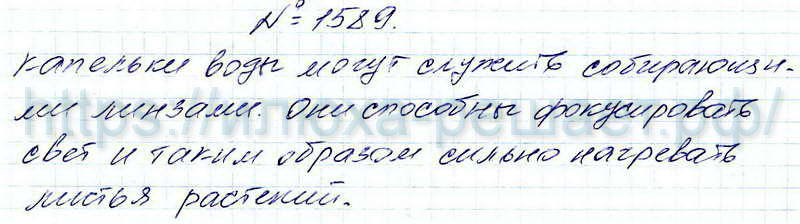 № 1589.
капельки воды могут служить собирающи-
ми линзами. Они способны фокусировать
https://илюха-решает.рф/
свет и таким образом сильно нагревать
листья растений.